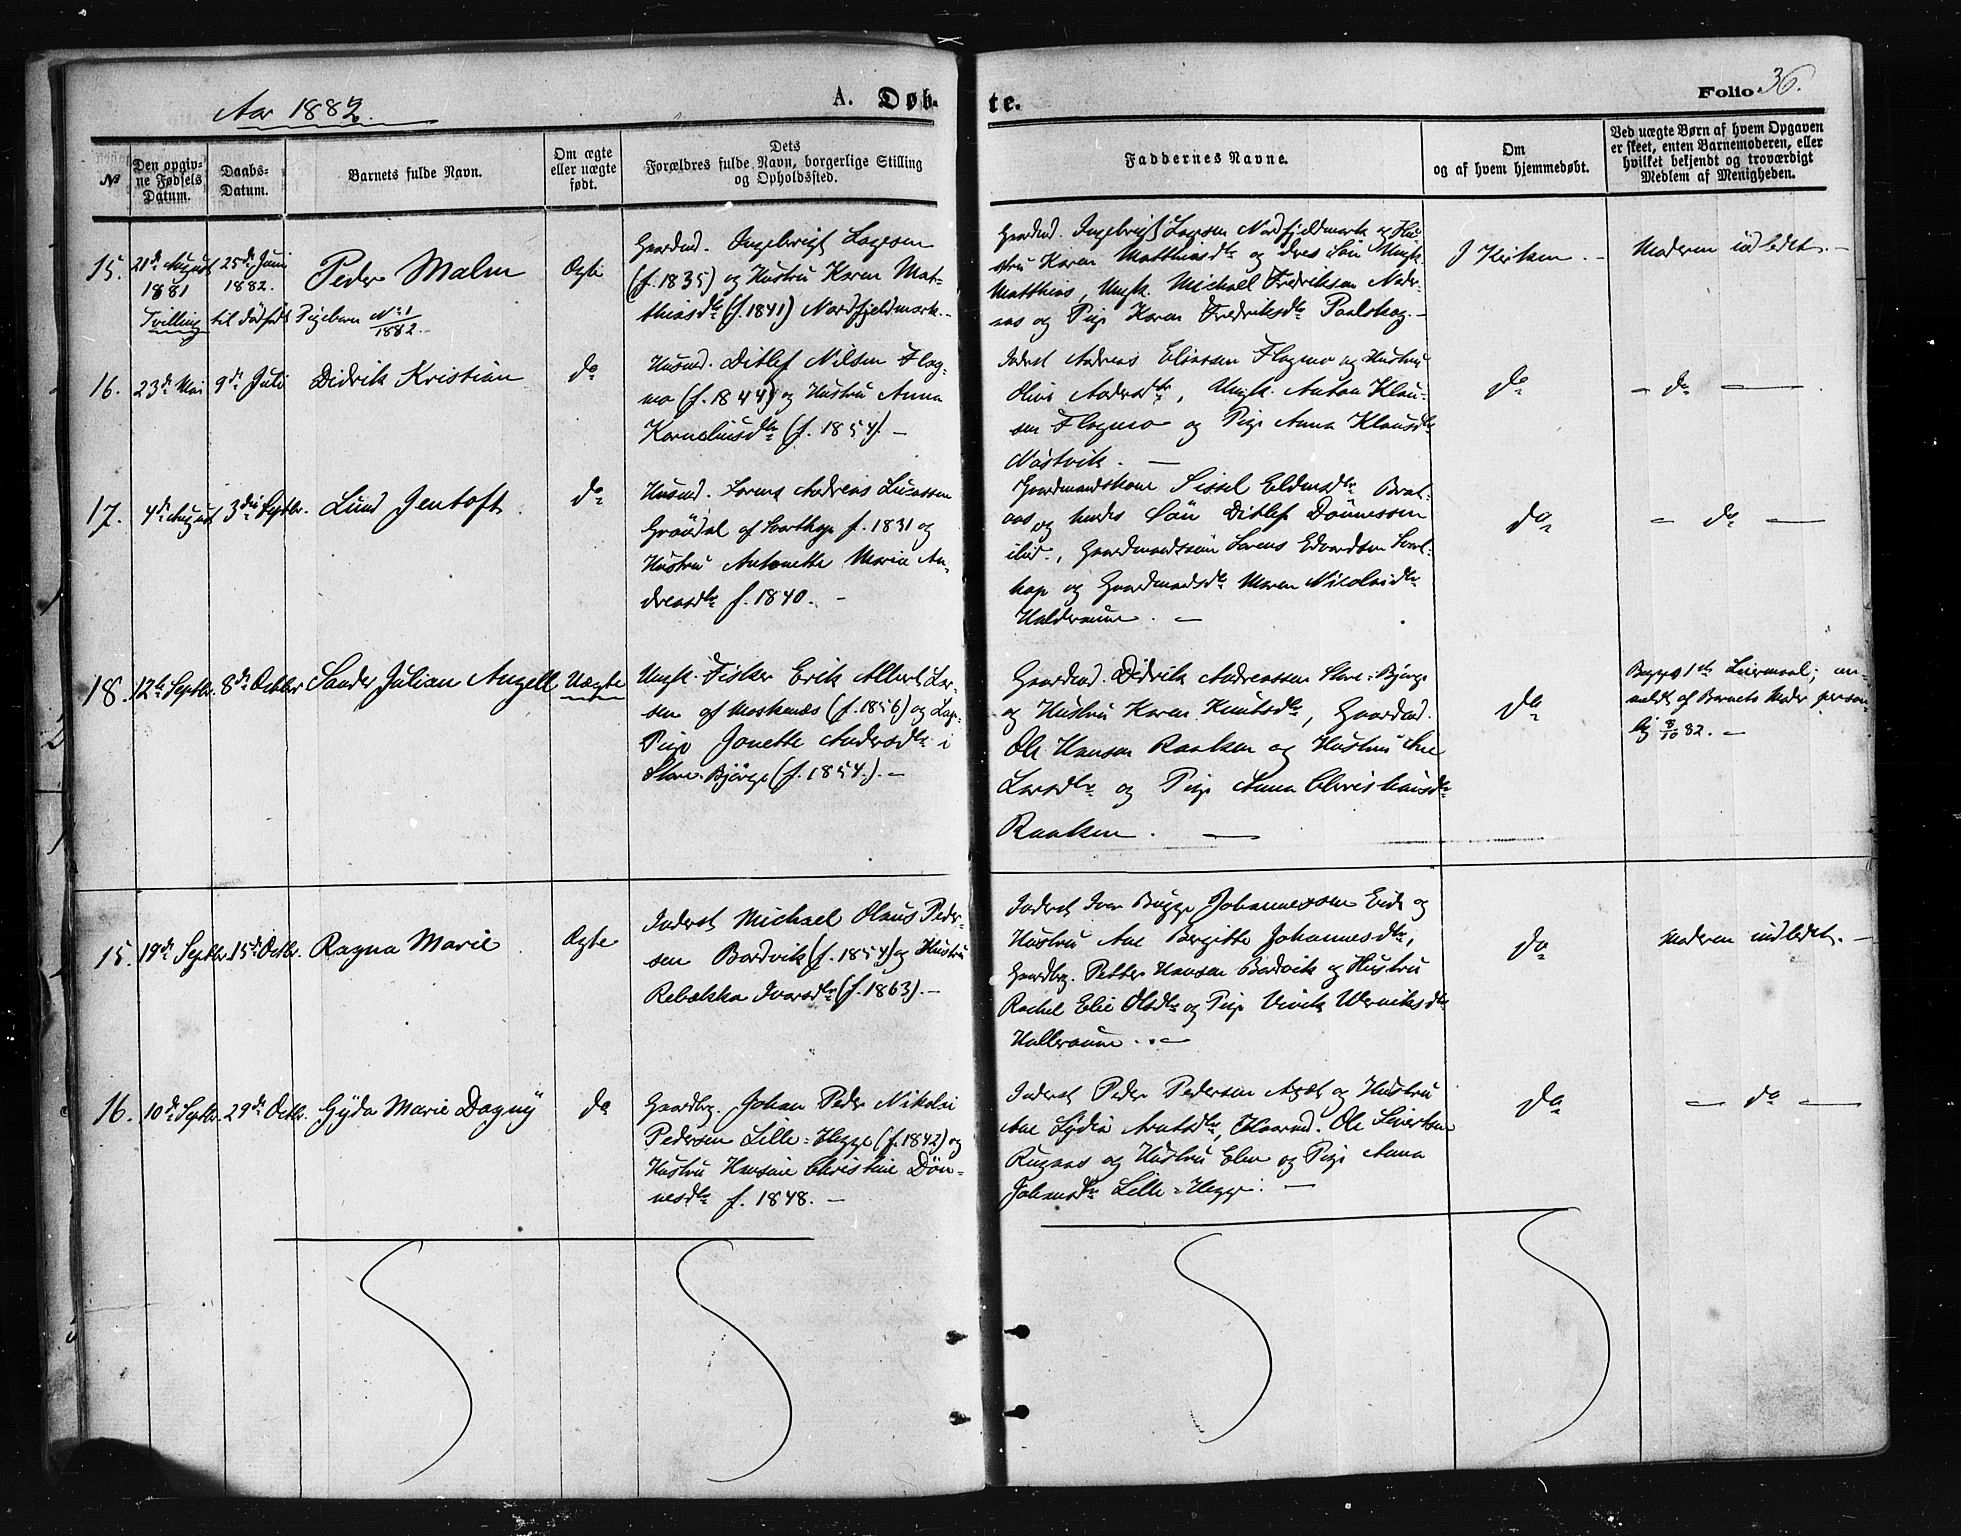 Aar 1882.
A. Døb-
te.
Folio 36.
№
Den opgiv-
ne Fødsels
Datum.
Daabs-
Datum.
Barnets fulde Navn.
Om ægte
eller uægte
født.
Dets
Forældres fulde Navn, borgerlige Stilling
og Opholdssted.
Faddernes Navne.
Om
og af hvem hjemmedøbt.
Ved uægte Børn af hvem Opgaven
er skeet, enten Barnemoderen, eller
hvilket bekjendt og troværdigt
Medlem af Menigheden.
15.
21de August
1881
25de Juni
1882.
Peder Malm
Tvilling til dødfødt Pigebarn No 1
1882.
Ægte
Gaardmd. Ingebrigt Lagesen
(f. 1835) og Hustru Karen Mat-
thiasdtr (f. 1841) Nordfjeldmark.-
Gaardmd. Ingebrigt Lagesen Nordfjeldmark og Hu-
stru Karen Matthiasdtr og dres Søn Ungk.
Matthias, Ungk. Michael Fredriksen
og Pige Karen Fredriksdtr Paalskog.-
I Kirken.-
Moderen indledet.-
16.
23de Mai
9de Juli
Didrik Kristian
do
Husmd. Ditlef Nilsen Flog-
mo (f. 1844) og Hustru Anna
Korneliusdtr (f. 1854).-
Inderst Andreas Eliassen Flogmo og Hustru
Andersdtr, Ungk. Anton Klau-
sen Flogmo og Pige Anna Klausdtr
Nästvik.-
do
- do -
17.
4de August
3die Septbr.
Lund Jentoft.
do
Husmd. Lorens Andreas Lucassen
Graadal af f. 1831 og
Hustru Antonette Maria An-
dreasdtr f. 1840.-
Gaardmandskone Sissel
og hendes Søn Ditlef Dönnessen
ibid., Gaardmandssøn Lorens Edvardsen
og Gaardmandsdtr Maren Nicolaidtr
do
- do -
18.
12te Septbr.
8de Octbr
Sander Julian Angell
Uægte
Ungk. Fisker Erik Albert Lar-
sen af Moskenæs (f. 1856) og
Pige Jonette Andersdtr i
Store-Bjørge (f. 1854).-
Gaardmd. Didrik Andreassen Store-Bjørge
og Hustru Karen Knutsdtr, Gaardmd.
Ole Hansen Raaken og Hustru Ane
Larsdtr og Pige Anna Christiansdtr
Raaken.-
do
Begges 1ste Leiermaal; an-
meldt af Barnets Moder person-
lig 8/10 82.-
15.
19de Septbr.
15de Octbr.
Ragna Marie
Ægte
Inderst Michael Olaus Peder-
sen Bardvik (f. 1854) og Hustru
Rebekka Ivarsdtr (f. 1863).-
Inderst Ivar Bugge Johannessen Eide og
Hustru Ane Bergitte Johannesdtr,
Gaardbrg. Petter Hansen Bardvik og Hustru
Rachel Elie Olsdtr og Pige
do
Moderen indledet.-
16.
10de Septbr.
29de Octbr.
Gyda Marie Dagny
do
Gaardbrg. Johan Peder Nikolai
Pedersen Lille-Hegge (f. 1842) og
Hustru Hansine Christine Dön-
nesdtr f. 1848.-
Inderst Peder Pedersen og Hustru
Ane Lydia Arntsdtr, Ole Sivertsen
og Hustru Elen og Pige Anna
Johansdtr Lille-Hegge.-
do
- do -